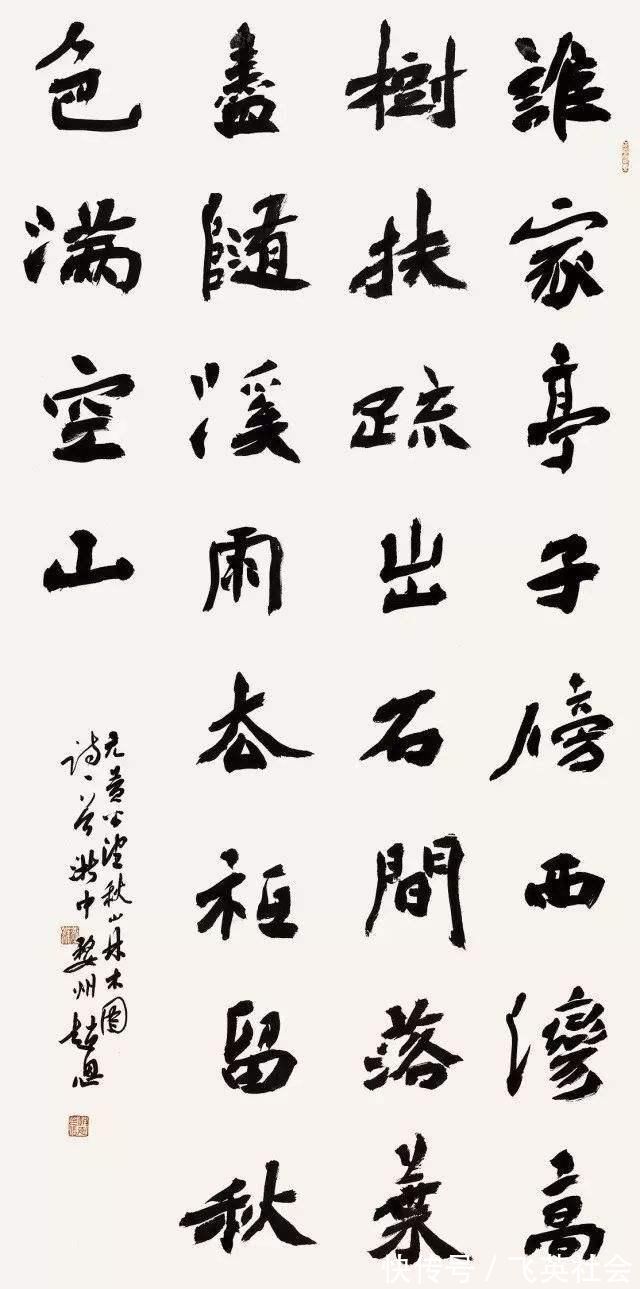 誰家亭子傍西灣高
樹扶疏出石間落葉
盡隨溪雨去祗留秋
色满空山
元黄公望秋山林木圖
詩一首浙中婺州趙恩
快传号/飞英社会